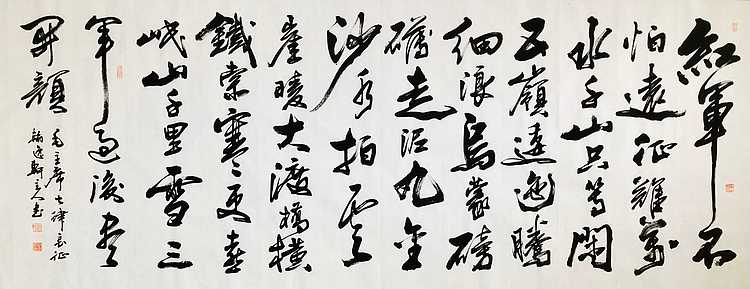 紅軍不
怕遠征難萬
水千山只等閑
五嶺逶迤騰
細浪烏蒙磅
礴走泥丸金
沙水拍雲
崖暖大渡橋橫
鐵索寒更喜
岷山千里雪三
軍過後盡
開顏
毛主席七律長征
軒主人書